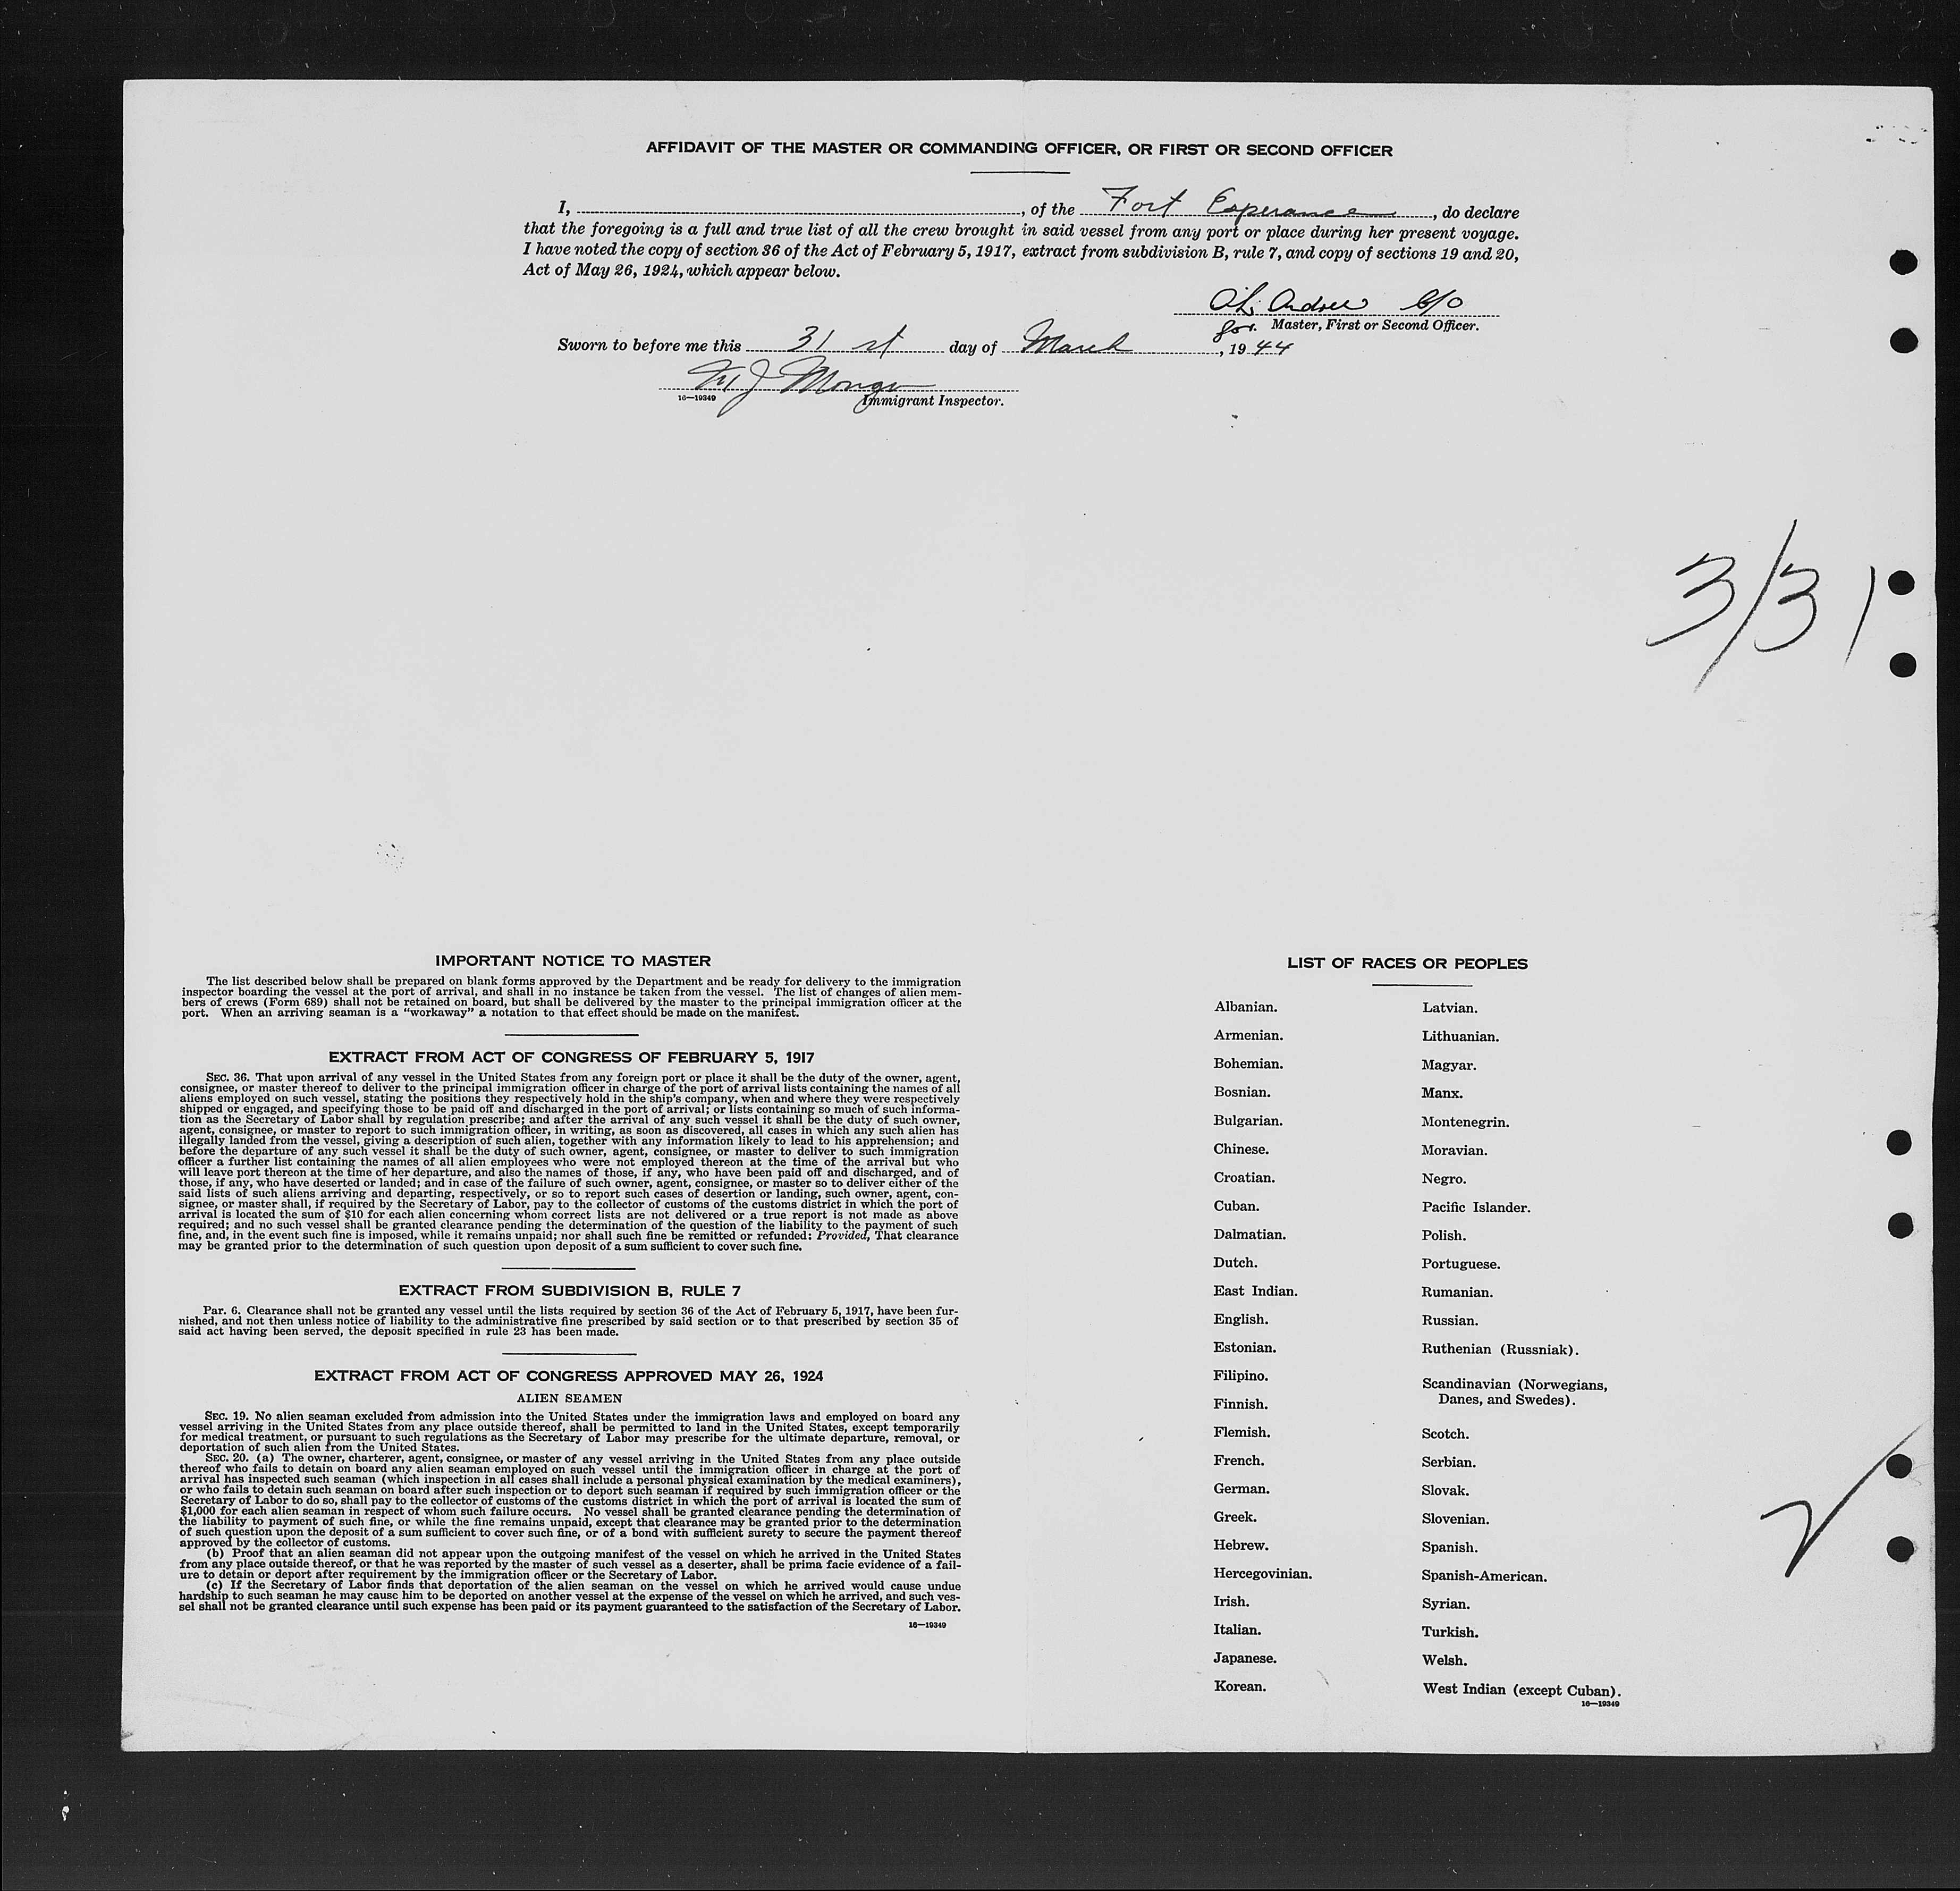 AFFIDAVIT OF THE MASTER OR COMMANDING OFFICER, OR FIRST OR SECOND OFFICER
I, , of the Fort Esperance, do declare
that the foregoing is a full and true list of all the crew brought in said vessel from any port or place during her present voyage.
I have noted the copy of section 36 of the Act of February 5, 1917, extract from subdivision B, rule 7, and copy of sections 19 and 20,
Act of May 26, 1924, which appear below.
for. Master, First or Second Officer.
Sworn to before me this 31 st day of March, 1944
16—19349
Immigrant Inspector.
3/31
IMPORTANT NOTICE TO MASTER
The list described below shall be prepared on blank forms approved by the Department and be ready for delivery to the immigration
inspector boarding the vessel at the port of arrival, and shall in no instance be taken from the vessel. The list of changes of alien mem-
bers of crews (Form 689) shall not be retained on board, but shall be delivered by the master to the principal immigration officer at the
port. When an arriving seaman is a "workaway" a notation to that effect should be made on the manifest.
EXTRACT FROM ACT OF CONGRESS OF FEBRUARY 5, 1917
SEC. 36. That upon arrival of any vessel in the United States from any foreign port or place it shall be the duty of the owner, agent,
consignee, or master thereof to deliver to the principal immigration officer in charge of the port of arrival lists containing the names of all
aliens employed on such vessel, stating the positions they respectively hold in the ship's company, when and where they were respectively
shipped or engaged, and specifying those to be paid off and discharged in the port of arrival; or lists containing so much of such informa-
tion as the Secretary of Labor shall by regulation prescribe; and after the arrival of any such vessel it shall be the duty of such owner,
agent, consignee, or master to report to such immigration officer, in writing, as soon as discovered, all cases in which any such alien has
illegally landed from the vessel, giving a description of such alien, together with any information likely to lead to his apprehension; and
before the departure of any such vessel it shall be the duty of such owner, agent, consignee, or master to deliver to such immigration
officer a further list containing the names of all alien employees who were not employed thereon at the time of the arrival but who
will leave port thereon at the time of her departure, and also the names of those, if any, who have been paid off and discharged, and of
those, if any, who have deserted or landed; and in case of the failure of such owner, agent, consignee, or master so to deliver either of the
said lists of such aliens arriving and departing, respectively, or so to report such cases of desertion or landing, such owner, agent, con-
signee, or master shall, if required by the Secretary of Labor, pay to the collector of customs of the customs district in which the port of
arrival is located the sum of $10 for each alien concerning whom correct lists are not delivered or a true report is not made as above
required; and no such vessel shall be granted clearance pending the determination of the question of the liability to the payment of such
fine, and, in the event such fine is imposed, while it remains unpaid; nor shall such fine be remitted or refunded: Provided, That clearance
may be granted prior to the determination of such question upon deposit of a sum sufficient to cover such fine.
EXTRACT FROM SUBDIVISION B, RULE 7
Par. 6. Clearance shall not be granted any vessel until the lists required by section 36 of the Act of February 5, 1917, have been fur-
nished, and not then unless notice of liability to the administrative fine prescribed by said section or to that prescribed by section 35 of
said act having been served, the deposit specified in rule 23 has been made.
EXTRACT FROM ACT OF CONGRESS APPROVED MAY 26, 1924
ALIEN SEAMEN
SEC. 19. No alien seaman excluded from admission into the United States under the immigration laws and employed on board any
vessel arriving in the United States from any place outside thereof, shall be permitted to land in the United States, except temporarily
for medical treatment, or pursuant to such regulations as the Secretary of Labor may prescribe for the ultimate departure, removal, or
deportation of such alien from the United States.
SEC. 20. (a) The owner, charterer, agent, consignee, or master of any vessel arriving in the United States from any place outside
thereof who fails to detain on board any alien seaman employed on such vessel until the immigration officer in charge at the port of
arrival has inspected such seaman (which inspection in all cases shall include a personal physical examination by the medical examiners),
or who fails to detain such seaman on board after such inspection or to deport such seaman if required by such immigration officer or the
Secretary of Labor to do so, shall pay to the collector of customs of the customs district in which the port of arrival is located the sum of
$1,000 for each alien seaman in respect of whom such failure occurs. No vessel shall be granted clearance pending the determination of
the liability to payment of such fine, or while the fine remains unpaid, except that clearance may be granted prior to the determination
of such question upon the deposit of a sum sufficient to cover such fine, or of a bond with sufficient surety to secure the payment thereof
approved by the collector of customs.
(b) Proof that an alien seaman did not appear upon the outgoing manifest of the vessel on which he arrived in the United States
from any place outside thereof, or that he was reported by the master of such vessel as a deserter, shall be prima facie evidence of a fail-
ure to detain or deport after requirement by the immigration officer or the Secretary of Labor.
(c) If the Secretary of Labor finds that deportation of the alien seaman on the vessel on which he arrived would cause undue
hardship to such seaman he may cause him to be deported on another vessel at the expense of the vessel on which he arrived, and such ves-
sel shall not be granted clearance until such expense has been paid or its payment guaranteed to the satisfaction of the Secretary of Labor.
16—19349
LIST OF RACES OR PEOPLES
Albanian.
Armenian.
Bohemian.
Bosnian.
Bulgarian.
Chinese.
Croatian.
Cuban.
Dalmatian.
Dutch.
East Indian.
English.
Estonian.
Filipino.
Finnish.
Flemish.
French.
German.
Greek.
Hebrew.
Hercegovinian.
Irish.
Italian.
Japanese.
Korean.
Latvian.
Lithuanian.
Magyar.
Manx.
Montenegrin.
Moravian.
Negro.
Pacific Islander.
Polish.
Portuguese.
Rumanian.
Russian.
Ruthenian (Russniak).
Scandinavian (Norwegians,
Danes, and Swedes).
Scotch.
Serbian.
Slovak.
Slovenian.
Spanish.
Spanish-American.
Syrian.
Turkish.
Welsh.
West Indian (except Cuban).
16—19349